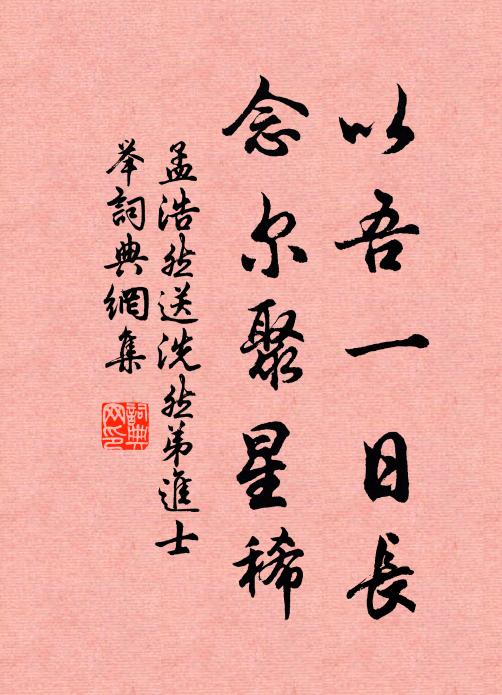 以吾一日長
念尔聚星稀
孟浩然送洗然弟進士
举詞典網集
詞典网印